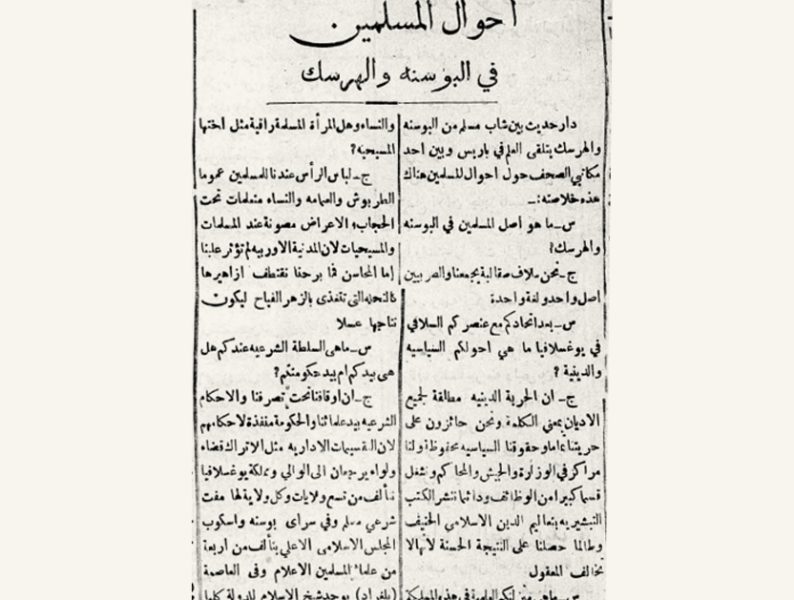 احوال المسلمين
في البوسنه والهرسك
دار حديث بين شاب مسلم من البوسنه
والهرسك يتلقى العلم في باريس وبين احد
مكاتبي الصحف حول احوال المسلمين هناك
هذه خلاصته :ـ
س ـ ما هو أصل المسلمين في البوسنه
والهرسك؟
ج ـ نحن سلاف صقالبة يجمعنا والصربيين
اصل واحد ولغة واحدة
س ـ بعد اتحادكم مع عنصركم السلافي
في يوغسلافيا ما هي احوالكم السياسيه
والدينية ؟
ج ـ ان الحرية الدينيه مطلقة لجميع
الاديان بمعنى الكلمة ونحن حائزون على
حريتنا تماما وحقوقنا السياسيه محفوظة ولنا
مراكز في الوزارة والجيش والمحاكم ونشغل
قسما كبيرا من الوظائف ودائما تنشر الكتب
التبشيريه بتعاليم الدين الاسلامي الحنيف
وطالما حصلنا على النتيجة الحسنة لانها لا
تخالف المعقول
والنساء وهل المرأة المسلمة راقية مثل اختها
المسيحيه؟
ج ـ لباس الرأس عندنا للمسلمين عموما
الطربوش والعمامه والنساء متعلمات تحت
الحجاب، الاعراض مصونة عند المسلمات
والمسيحيات لان المدنية الاوربيه لم تؤثر علينا
إما المحاسن فما برحنا نقتطف ازاهيرها
كالنحله التي تتغذى بالزهر الفياح ليكون
نتاجها عسلا
س ـ ماهي السلطة الشرعيه عندكم هل
هي بيدكم ام بيد حكومتكم؟
ج ـ ان اوقافنا تحت تصرفنا والاحكام
الشرعيه بيد علمائنا والحكومة منفذة لاحكامهم
لان التقسيمات الاداريه مثل الاتراك قضاء
ولواء يرجعان الى الوالي ومملكة يوغسلافيا
تتألف من تسع ولايات وكل ولاية لها مفت
شرعي مسلم وفي سراي بوسنه واسكوب
المجلس الاسلامي الاعلى يتألف من اربعة
من علماء المسلمين الاعلام وفى العاصمة
(بلغراد) يوجد شيخ الاسلام للدولة كلها